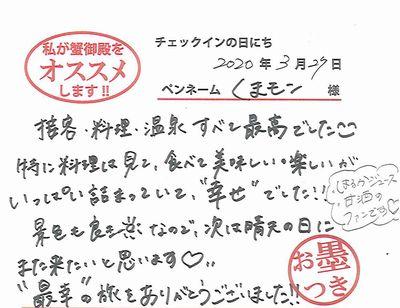 私が蟹御殿を
オススメ
します!!
チェックインの日にち
2020年3月29日
ペンネーム くまモン 様
接客・料理・温泉 すべて最高でした
特に料理は見て、食べて美味しい・楽しいが
いっぱい詰まっていて、"幸せ"でした!!
景色も良さそうなので、次は晴天の日に
また来たいと思います♡
"最幸"の旅をありがとうございました!!
はるかジュース
甘酒の
ファンです♡
お墨
つき